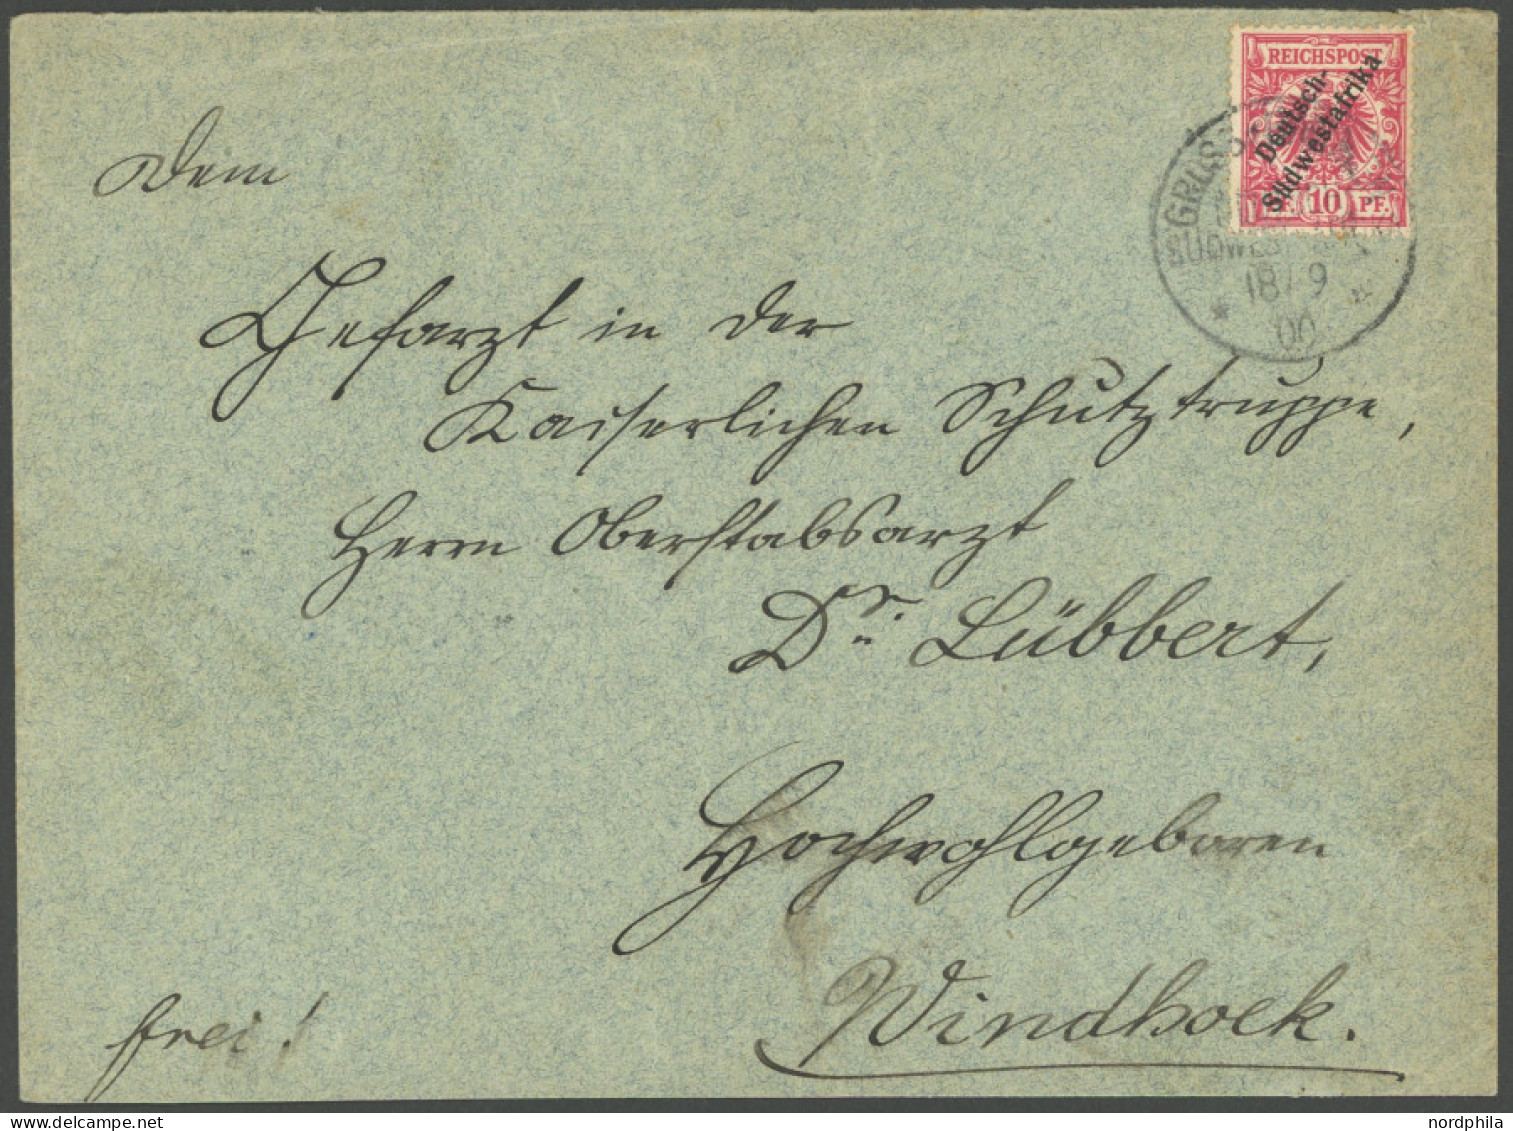 REICHSPOST
Deutsch-
Südwestafrika
10 PF.
18/9
00
Dem
Chefarzt in der
Kaiserlichen Schutztruppe,
Herrn Oberstabsarzt
Dr. Lübbert,
Hochwohlgeboren
Windhoek.
frei!
nordphila